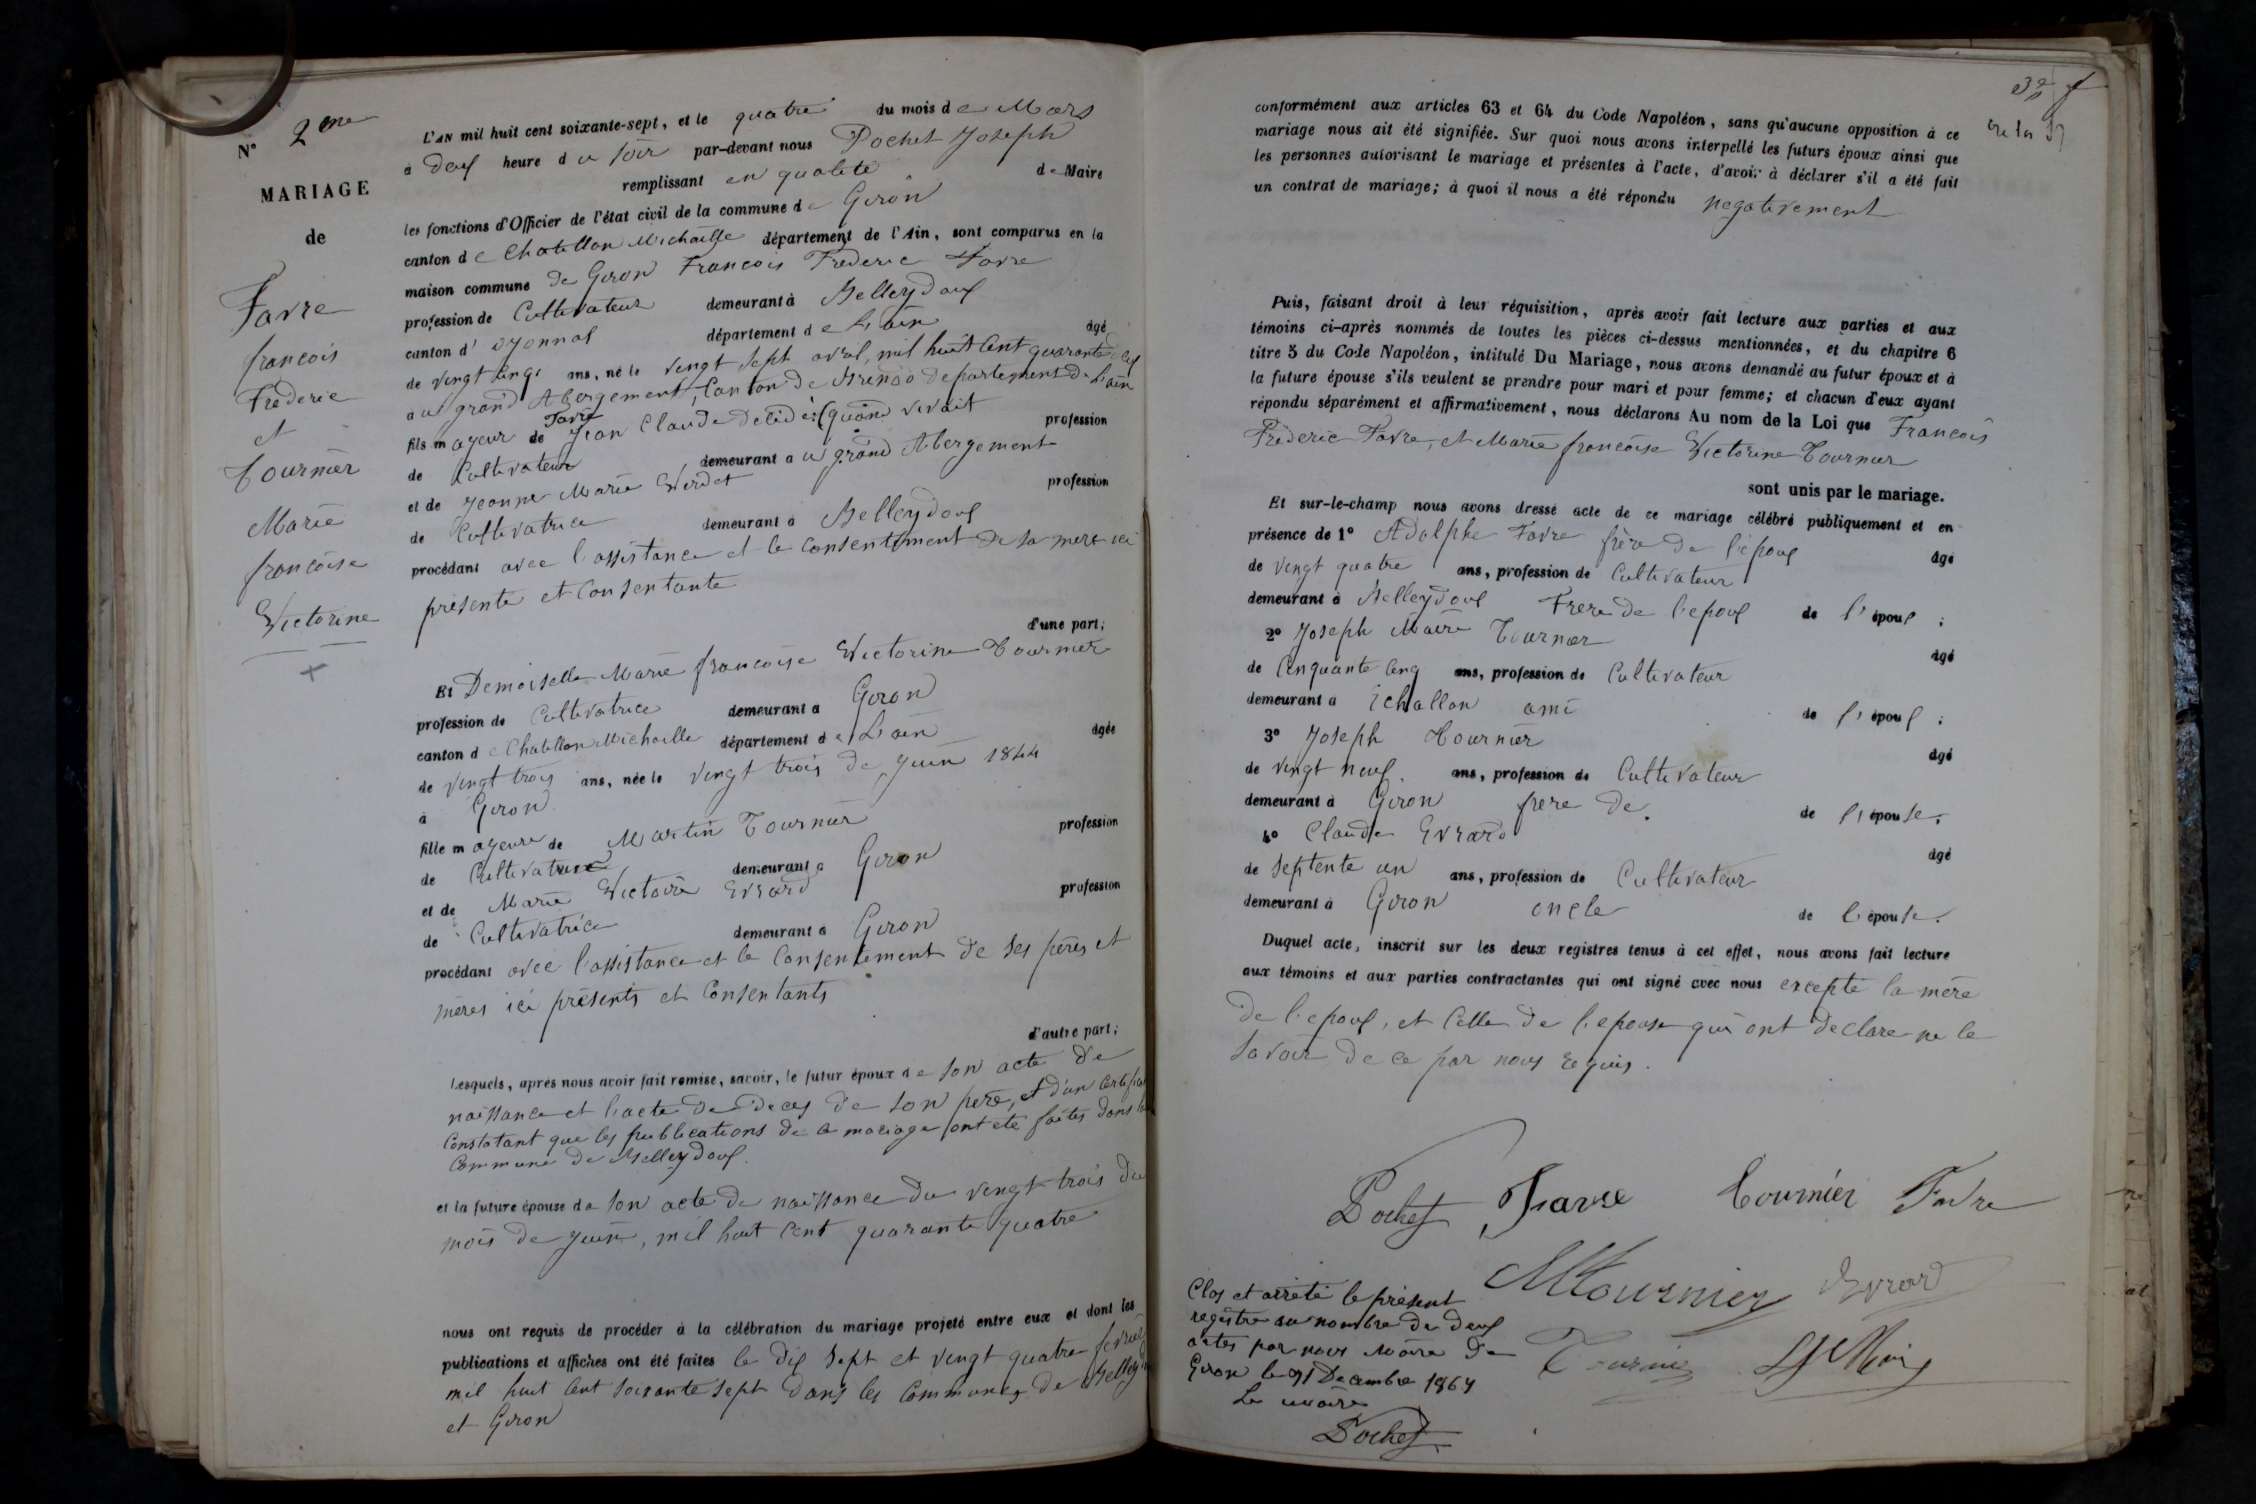 N° 2ème
MARIAGE
de
Favre
françois
Frèderic
et
Tournier
Marie
françoise
Victorine
L'AN mil huit cent soixante-sept, et le quatre du mois de Mars
à deux heure du soir par-devant nous Pochet Joseph
remplissant en qualité de Maire
les fonctions d'Officier de l'état civil de la commune de Giron
canton de Chatillon Michaille département de l'Ain, sont comparus en la
maison commune de Giron François Frederic Favre
profession de Cultivateur demeurant à Belleydoux
canton d' oyonnas département de L'ain âgé
de vingt cinq ans, né le vingt sept avril, mil huit cent quarante
au grand Abergement, Canton de Brénod departement de L'ain
fils mayeur de Favre Jean Claude décédé (quand vivait profession
de Cultivateur demeurant au grand Abergement
et de Jeanne Marie Verdet profession
de Cultivatrice demeurant à Belleydoux
procédant avec l'assistance et le consentement de sa mere ici
présente et consentante
d'une part;
Et Demoiselle Marie françoise Victorine Tournier
profession de Cultivatrice demeurant à Giron
canton de Chatillon Michaille département de L'ain âgée
de vingt trois ans, née le vingt trois de juin 1844
à Giron
fille mayeure de Martin Tournier profession
de Cultivateur demeurant à Giron
et de Marie Victoire Evrard profession
de Cultivatrice demeurant à Giron
procédant avec l'assistance et le consentement de ses pères et
mères ici présents et consentants
d'autre part;
Lesquels, après nous avoir fait remise, savoir, le futur époux de son acte de
naissance et l'acte de deces de son père, et d'un certificat
constatant que les publications de ce mariage ont été faites dans la
Commune de Belleydoux.
et la future épouse de son acte de naissance du vingt trois du
mois de juin, mil huit cent quarante quatre
nous ont requis de procéder à la célébration du mariage projeté entre eux et dont les
publications et affiches ont été faites le dix sept et vingt quatre fevrier
mil huit cent soixante sept dans les Communes de Belleyd
et Giron
32
conformément aux articles 63 et 64 du Code Napoléon, sans qu'aucune opposition à ce
mariage nous ait été signifiée. Sur quoi nous avons interpellé les futurs époux ainsi que
les personnes autorisant le mariage et présentes à l'acte, d'avoir à déclarer s'il a été fait
un contrat de mariage; à quoi il nous a été répondu négativement
Puis, faisant droit à leur réquisition, après avoir fait lecture aux parties et aux
témoins ci-après nommés de toutes les pièces ci-dessus mentionnées, et du chapitre 6
titre 5 du Code Napoléon, intitulé Du Mariage, nous avons demandé au futur époux et à
la future épouse s'ils veulent se prendre pour mari et pour femme; et chacun d'eux ayant
répondu séparément et affirmativement, nous déclarons Au nom de la Loi que François
Frèderic Favre, et Marie françoise Victorine Tournier
sont unis par le mariage.
Et sur-le-champ nous avons dressé acte de ce mariage célébré publiquement et en
présence de 1° Adolphe Favre frère de l'époux âgé
de vingt quatre ans, profession de Cultivateur
demeurant à Belleydoux Frere de l'epoux de l'époux;
2° Joseph Marie Tournier âgé
de Cinquante cinq ans, profession de Cultivateur
demeurant à Echallon ami de l'époux;
3° Joseph Tournier âgé
de vingt neuf ans, profession de Cultivateur
demeurant à Giron frere de. de l'épouse;
4° Claude Evrard âgé
de septente un ans, profession de Cultivateur
demeurant à Giron oncle de l'épouse.
Duquel acte, inscrit sur les deux registres tenus à cet effet, nous avons fait lecture
aux témoins et aux parties contractantes qui ont signé avec nous excepté la mère
de l'epoux, et celle de l'epouse qui ont déclaré ne le
savoir de ce par nous requis.
Pochet Favre Tournier Favre
MTournier Evrard
Tournier
Clos et arrêté le présent
registre au nombre de deux
actes par nous Maire de
Giron le 31 Decembre 1867
Le maire
Pochet